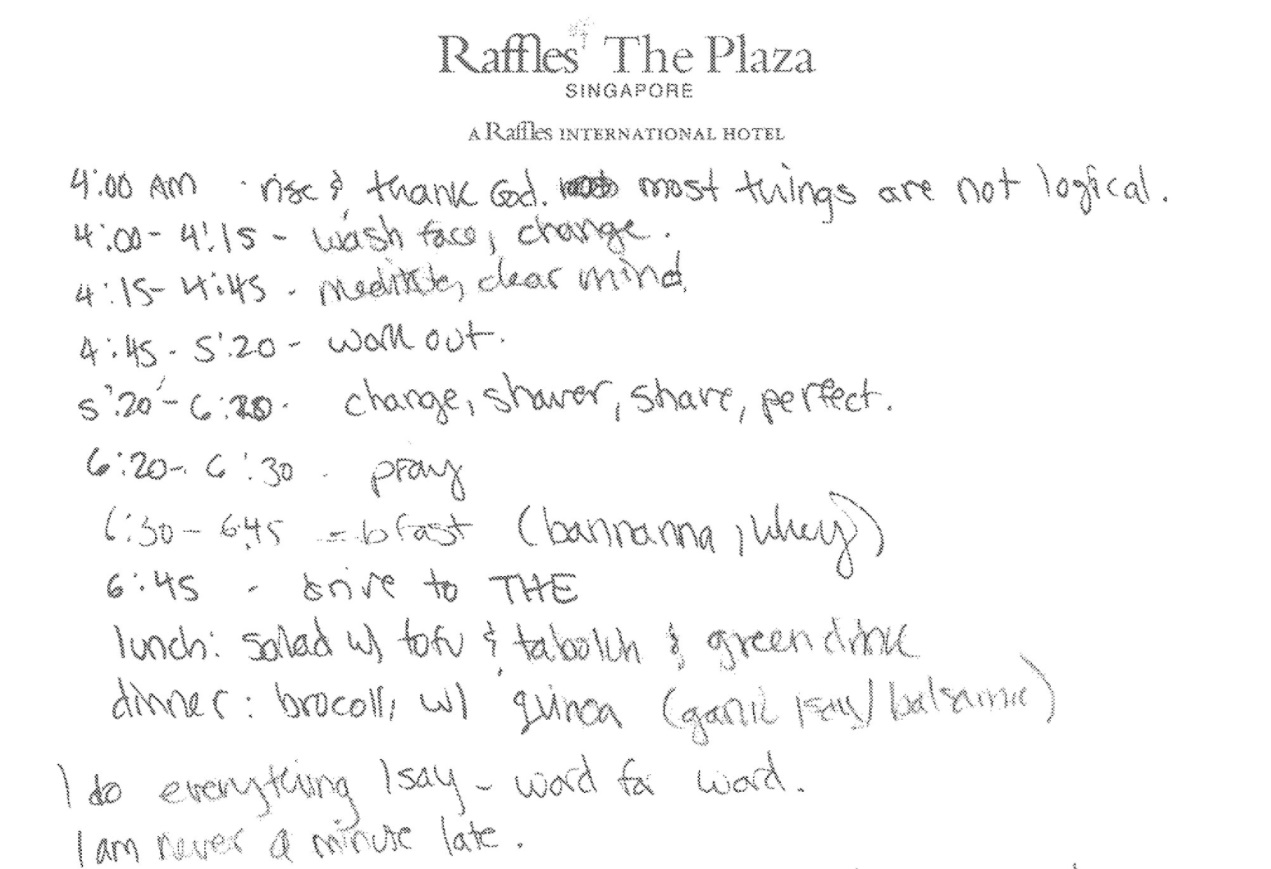 Raffles The Plaza
SINGAPORE
A Raffles INTERNATIONAL HOTEL
4:00 AM · rise & thank God. most things are not logical.
4:00 - 4:15 - wash face, change.
4:15 - 4:45 - meditate, clear mind.
4:45 - 5:20 - work out.
5:20 - 6:20 - change, shower, shave, perfect.
6:20 - 6:30 - pray
6:30 - 6:45 - bfast (bannanna, whey)
6:45 - drive to THE
lunch: salad w/ tofu & taboleh & green drink
dinner: brocolli w/ quinoa (garlic / soy / balsamic)
I do everything I say - word for word.
I am never a minute late.